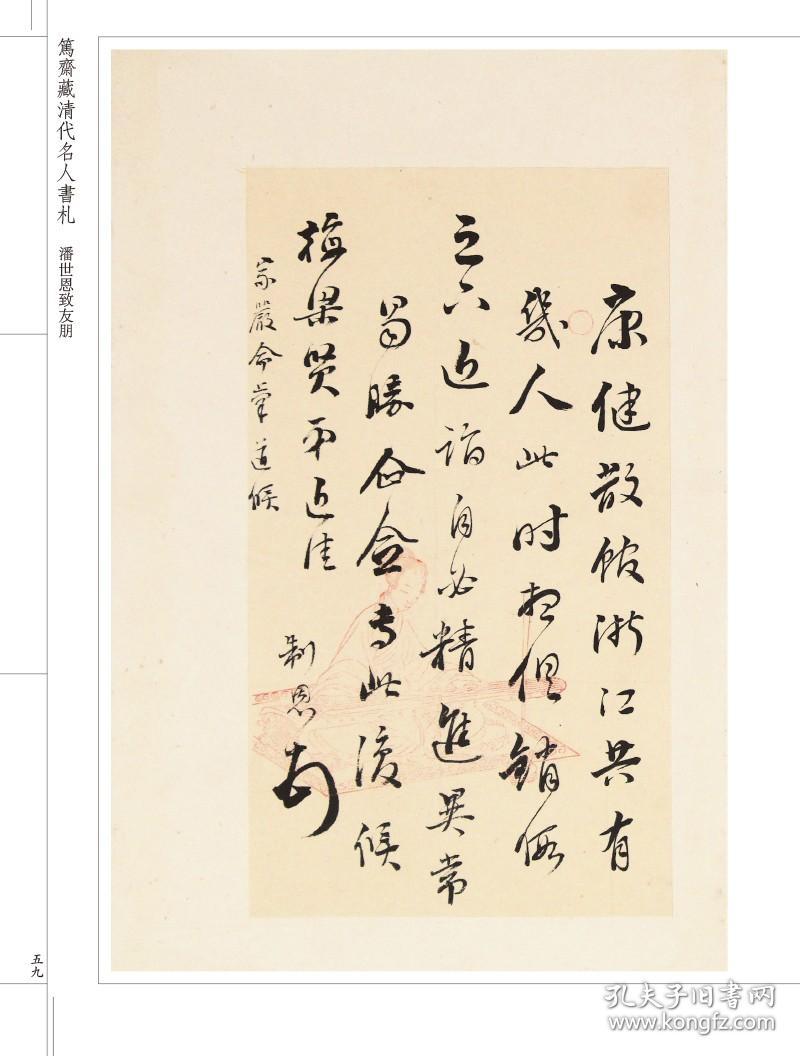 篤齋藏清代名人書札 潘世恩致友朋
康健散館浙江共有
幾人此时想俱銷假
之六近詣自必精進異常
為勝企念専此復候
梅梁賢弟近佳
制恩
家嚴命筆道候
五九
孔夫子旧書网
www.kongfz.com